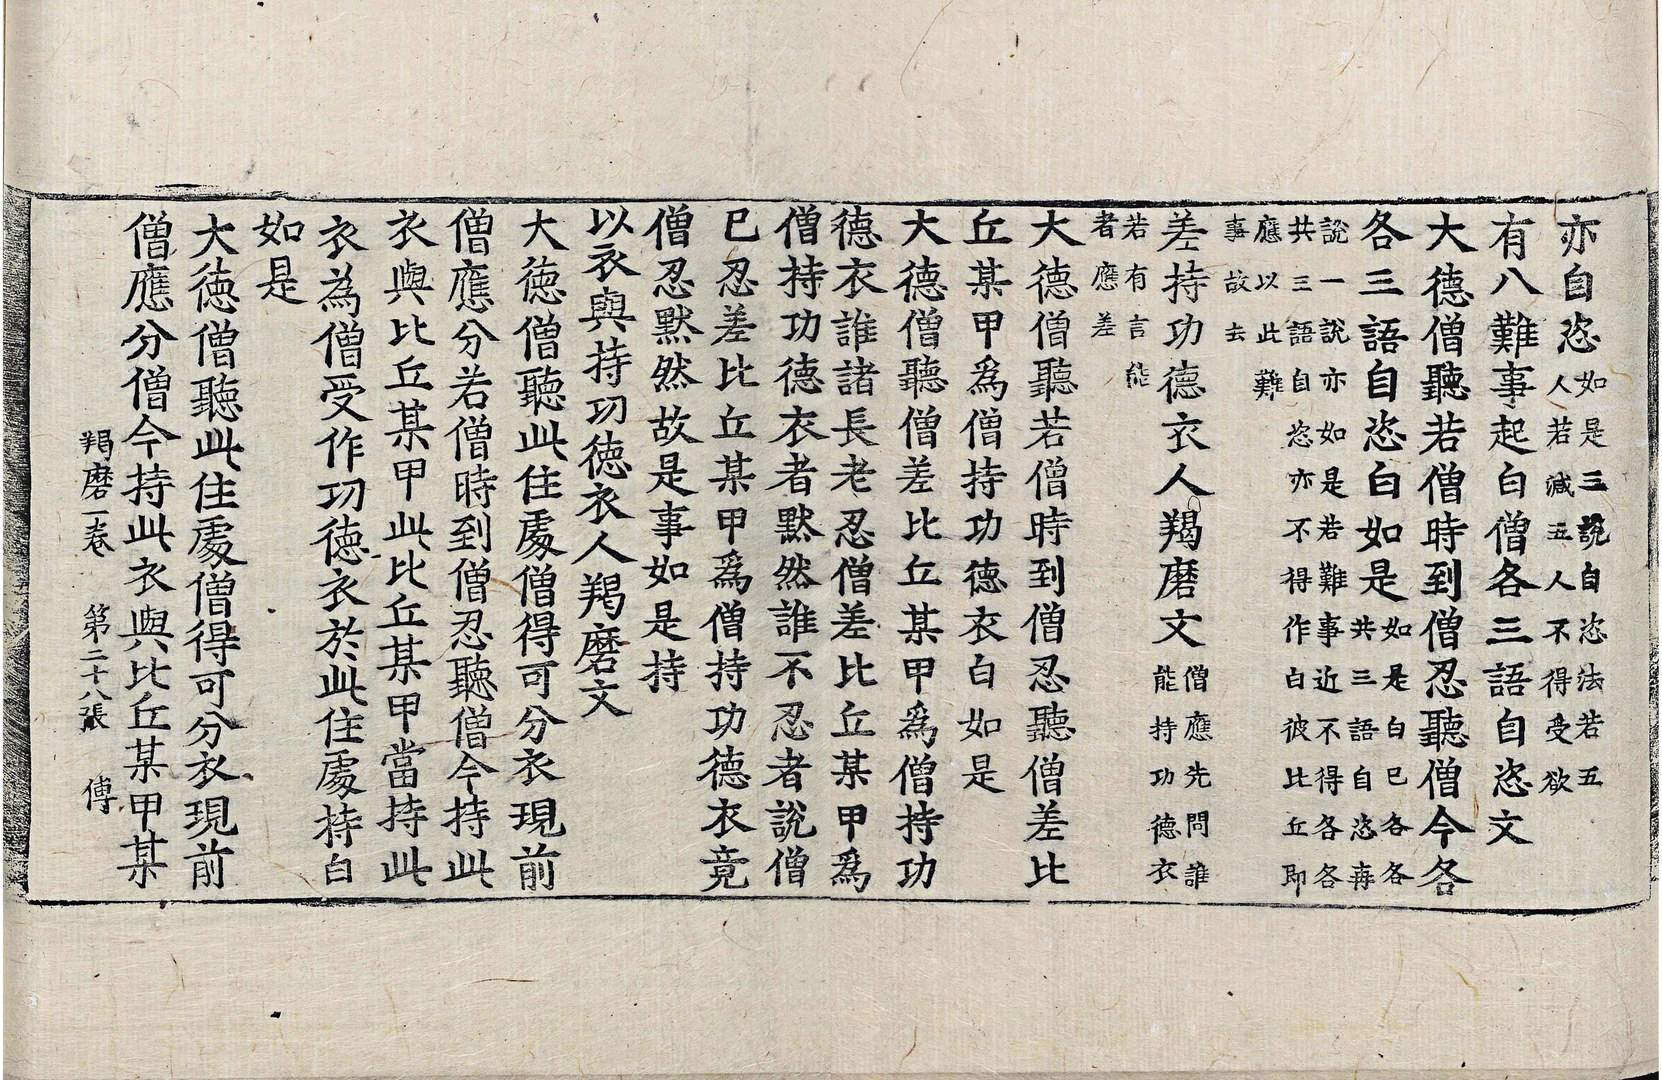 亦自恣如是三說自恣法若五
人若減五人不得受欲
有八難事起白僧各三語自恣文
大德僧聽若僧時到僧忍聽僧今各
各三語自恣白如是如是白已各各
共三語自恣再
說一說亦如是若難事近不得各各
共三語自恣亦不得作白彼比丘即
應以此難
事故去
差持功德衣人羯磨文僧應先問誰
能持功德衣
若有言能
者應差
大德僧聽若僧時到僧忍聽僧差比
丘某甲爲僧持功德衣白如是
大德僧聽僧差比丘某甲爲僧持功
德衣誰諸長老忍僧差比丘某甲爲
僧持功德衣者默然誰不忍者說僧
已忍差比丘某甲爲僧持功德衣竟
僧忍默然故是事如是持
以衣與持功德衣人羯磨文
大德僧聽此住處僧得可分衣現前
僧應分若僧時到僧忍聽僧今持此
衣與比丘某甲此比丘某甲當持此
衣為僧受作功德衣於此住處持白
如是
大德僧聽此住處僧得可分衣現前
僧應分僧今持此衣與比丘某甲某
羯磨一卷 第二十八張 傅